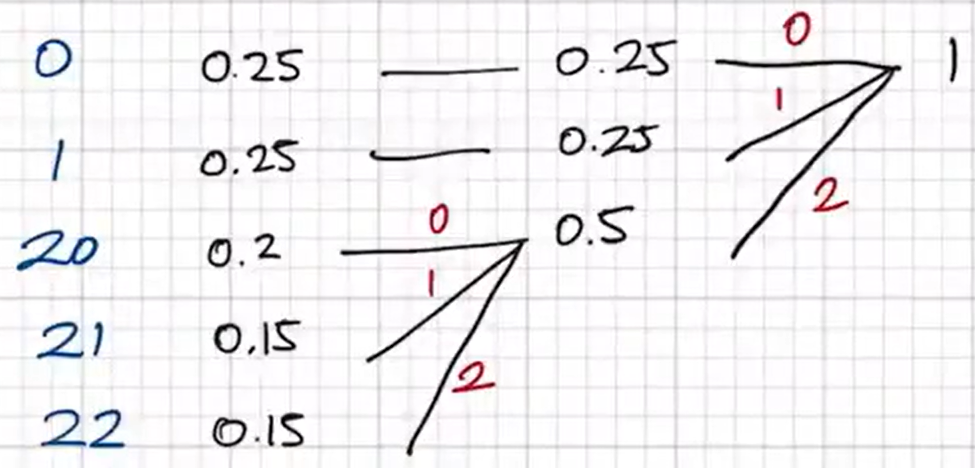 0 0.25 0.25 0 1
1 0.25 0.25 1
20 0.2 0 0.5 2
21 0.15 1
22 0.15 2